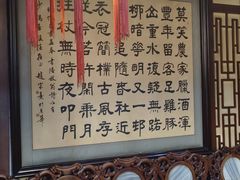 莫笑農家臘酒渾
豐年留客足雞豚
山重水複疑無路
柳暗花明又一邨
追隨春社近
衣冠簡樸古風存
從今若許閒乘月
拄杖無時夜叩門